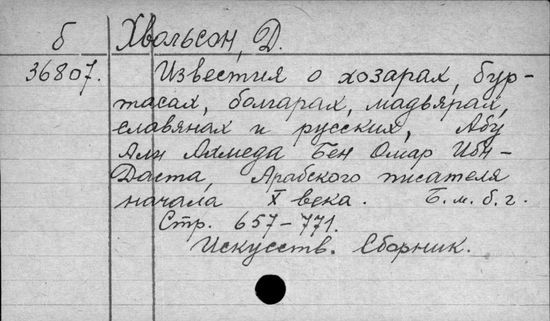 б Хвольсон, Д.
36807. Известия о хозарах, бур-
тасах, болгарах, мадьярах,
славянах и русских, Абу
Али Ахмеда Бен Омар Ибн-
Даста, Арабского писателя
начала X века. Б.м.б.г.
Стр. 657-771.
Искусств. Сборник.